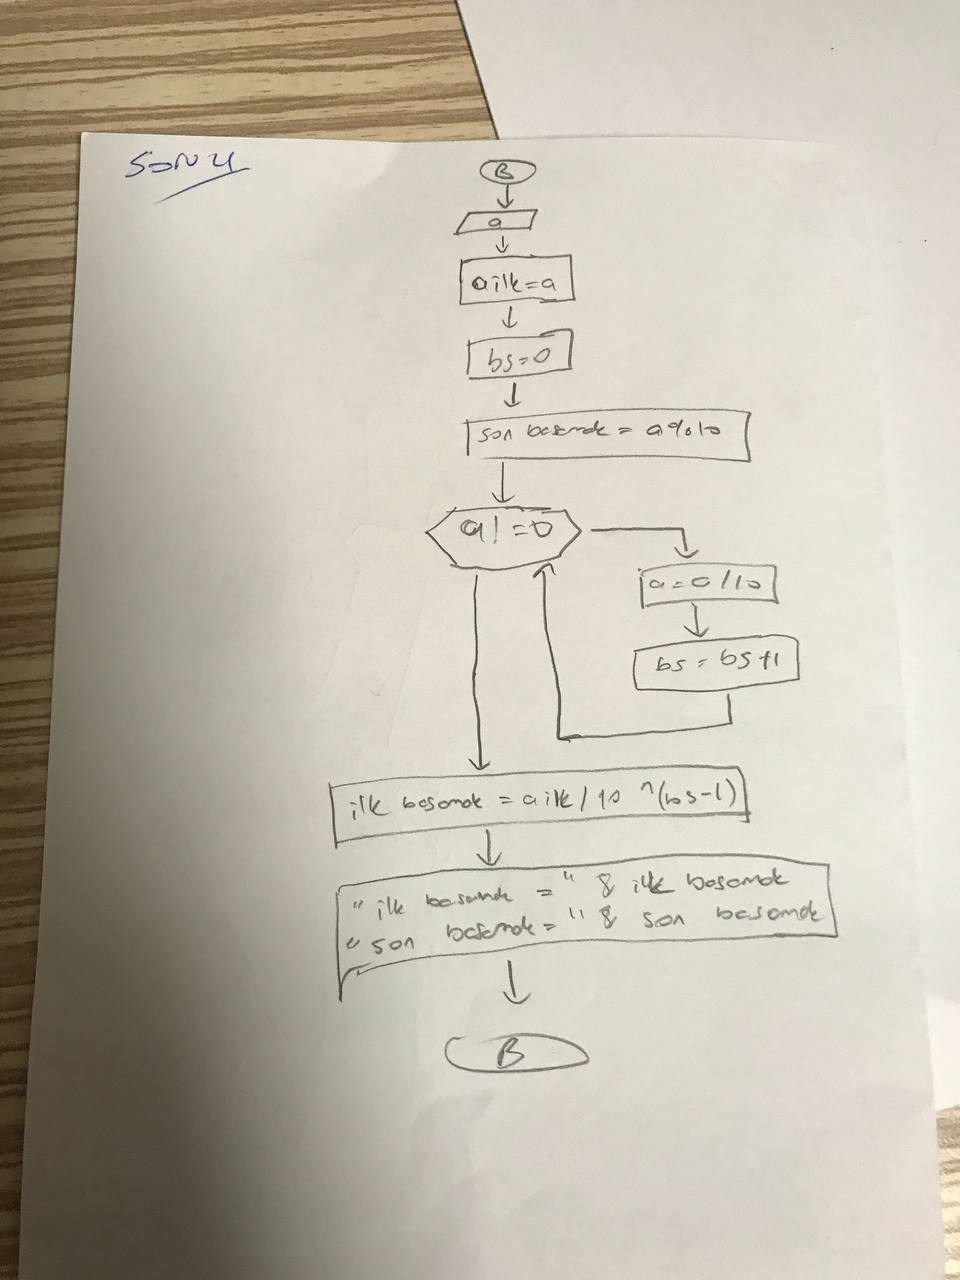 SON 4
B
a
ailk=a
bs=0
son basamak = a%10
a!=0
a=a/10
bs=bs+1
ilk basamak = ailk/10^(bs-1)
"ilk basamak =" & ilk basamak
"son basamak=" & son basamak
B